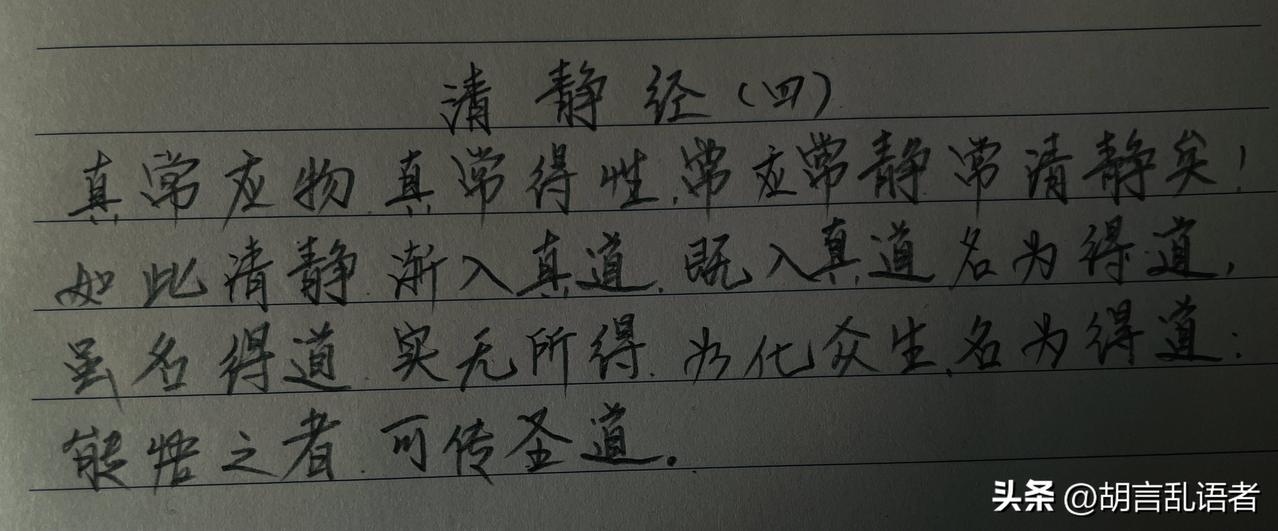 清静经(四)
真常应物.真常得性.常应常静.常清静矣!
如此清静.渐入真道.既入真道.名为得道,
虽名得道.实无所得.为化众生.名为得道:
能悟之者.可传圣道。
头条 @胡言乱语者